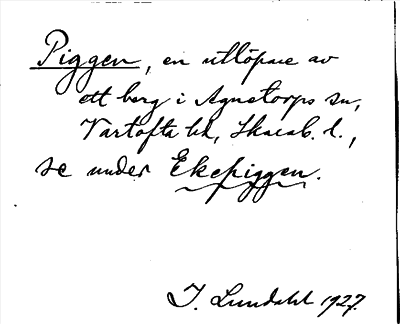 Piggen, en utlöpare av
ett berg i Agnetorps sn,
Vartofta hd, Skarab. l.,
se under Ekepiggen.
I. Lundahl 1927.